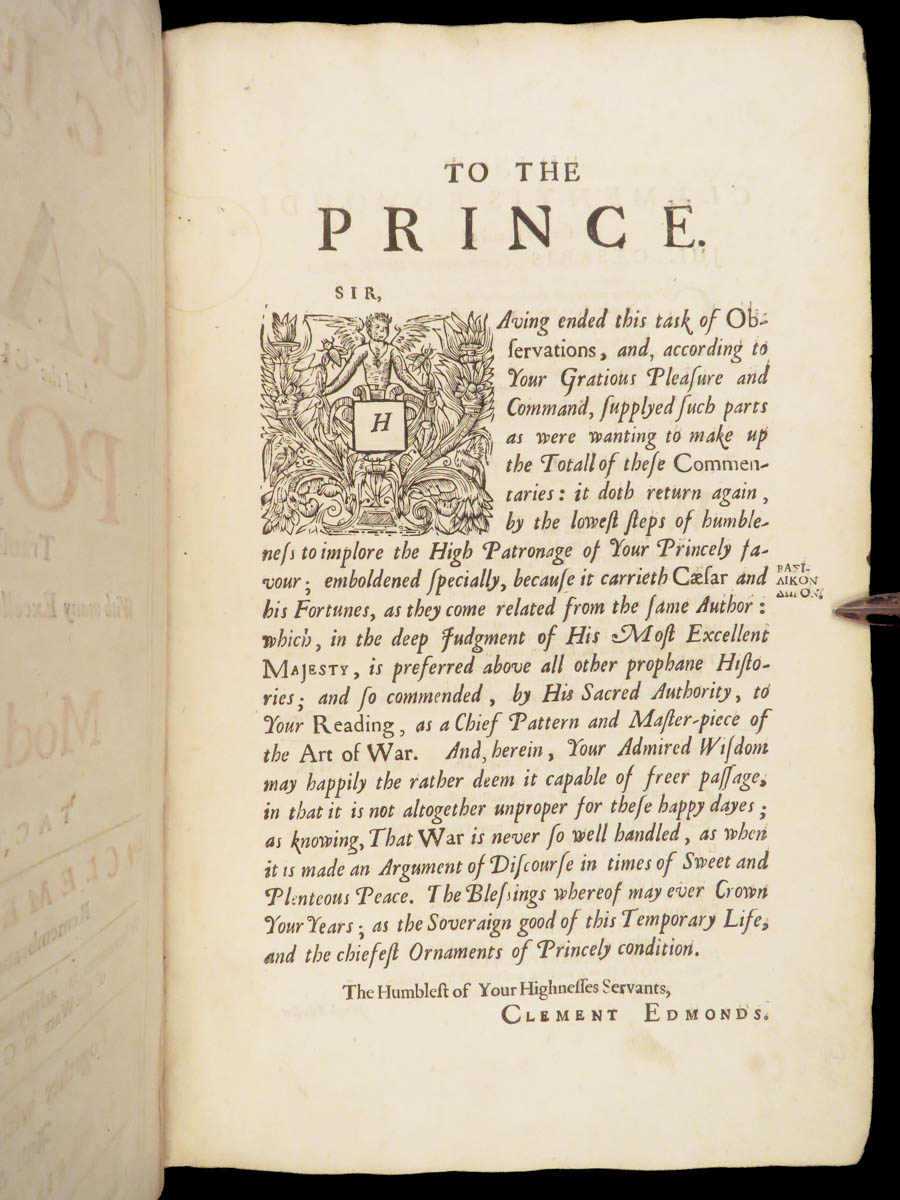 TO THE
PRINCE.
SIR,
HAving ended this task of Ob-
ſervations, and, according to
Your Gratious Pleaſure and
Command, ſupplyed ſuch parts
as were wanting to make up
the Totall of theſe Commen-
taries: it doth return again,
by the loweſt ſteps of humble-
neſs to implore the High Patronage of Your Princely fa-
vour; emboldened ſpecially, becauſe it carrieth Cæſar and
his Fortunes, as they come related from the ſame Author:
which, in the deep Judgment of His Moſt Excellent
MAJESTY, is preferred above all other prophane Hiſto-
ries; and ſo commended, by His Sacred Authority, to
Your Reading, as a Chief Pattern and Maſter-piece of
the Art of War. And, herein, Your Admired Wiſdom
may happily the rather deem it capable of freer paſſage,
in that it is not altogether unproper for theſe happy dayes;
as knowing, That War is never ſo well handled, as when
it is made an Argument of Diſcourſe in times of Sweet and
Plenteous Peace. The Bleſsings whereof may ever Crown
Your Years; as the Soveraign good of this Temporary Life,
and the chiefeſt Ornaments of Princely condition.
ΒΑΣΙ-
ΛΙΚΟΝ
ΔΩΡΟΝ.
The Humbleſt of Your Highneſſes Servants,
CLEMENT EDMONDS.